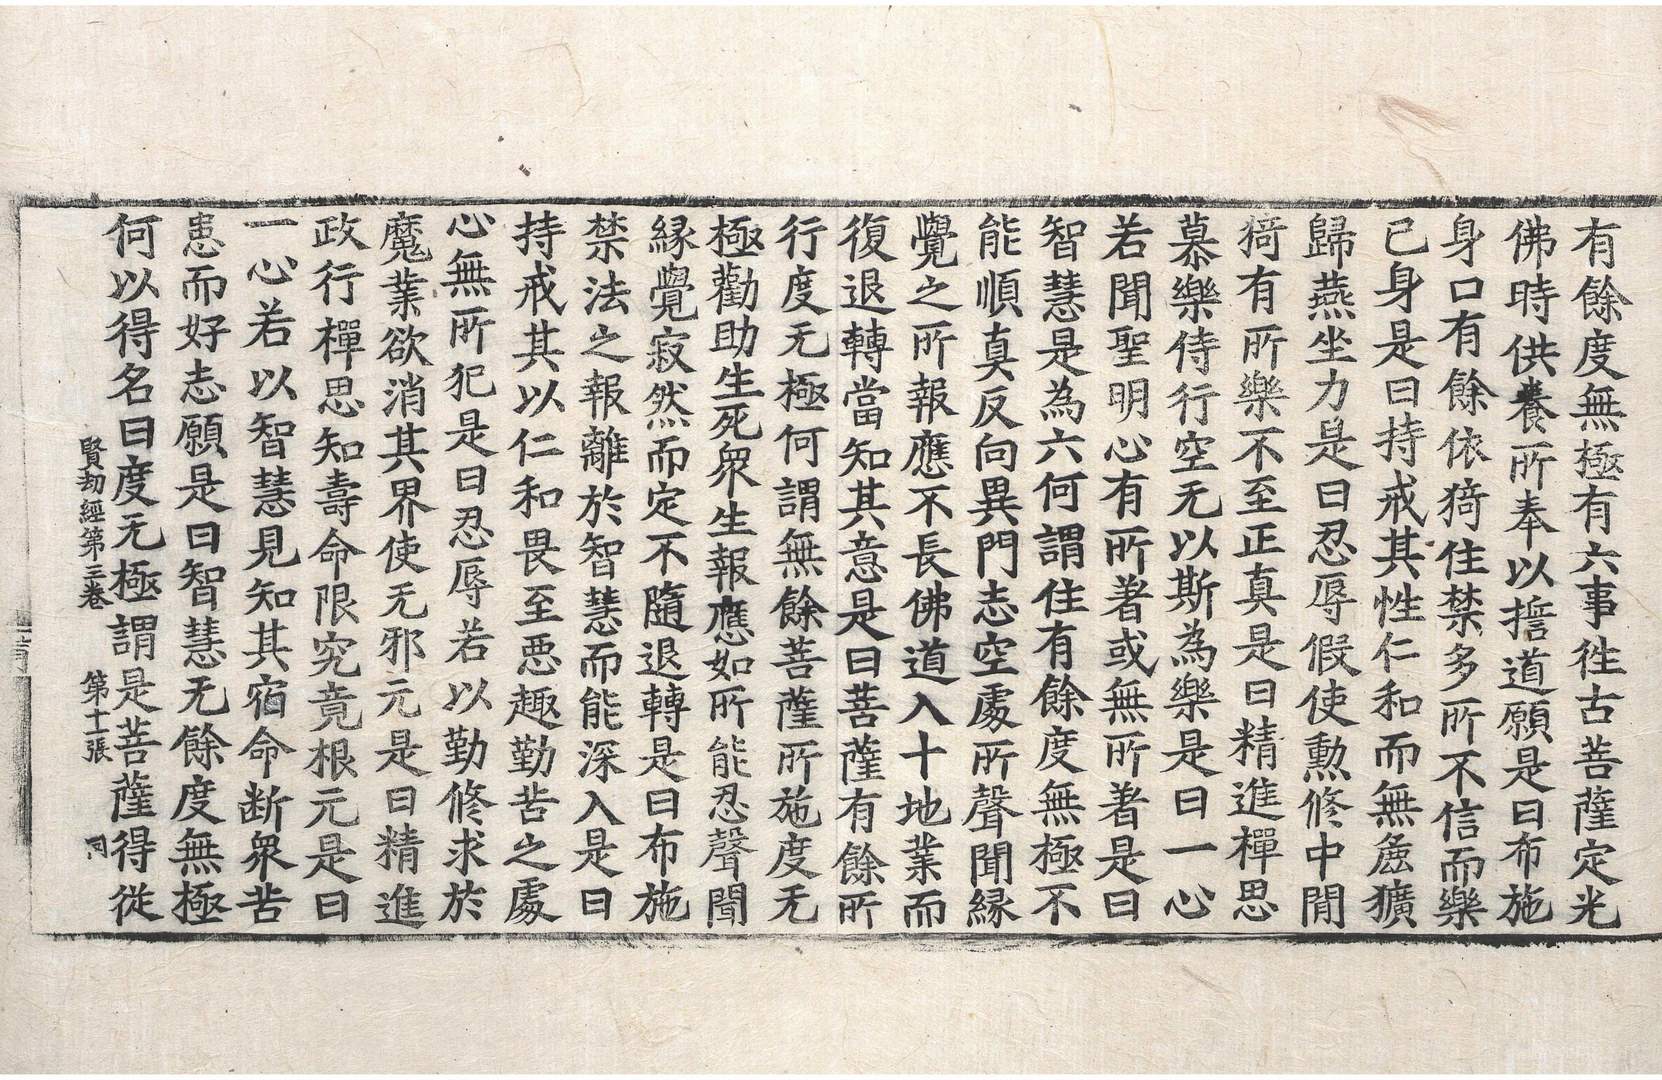 有餘度無極有六事徃古菩薩定光
佛時供養所奉以擔道願是曰布施
身口有餘依猗住禁多所不信而樂
己身是曰持戒其性仁和而無麁獷
歸燕坐力是曰忍辱假使勲修中閒
猗有所樂不至正真是曰精進禪思
慕樂侍行空无以斯為樂是曰一心
若聞聖明心有所著或無所著是曰
智慧是為六何謂住有餘度無極不
能順真反向異門志空處所聲聞縁
覺之所報應不長佛道入十地業而
復退轉當知其意是曰菩薩有餘所
行度无極何謂無餘菩薩所施度无
極勸助生死衆生報應如所能忍聲聞
縁覺寂然而定不隨退轉是曰布施
禁法之報離於智慧而能深入是曰
持戒其以仁和畏至惡趣勤苦之處
心無所犯是曰忍辱若以勤修求於
魔業欲消其界使无邪元是曰精進
政行禪思知壽命限究竟根元是曰
一心若以智慧見知其宿命断衆苦
患而好志願是曰智慧无餘度無極
何以得名曰度无極謂是菩薩得從
賢劫經第三卷 第十一張 同